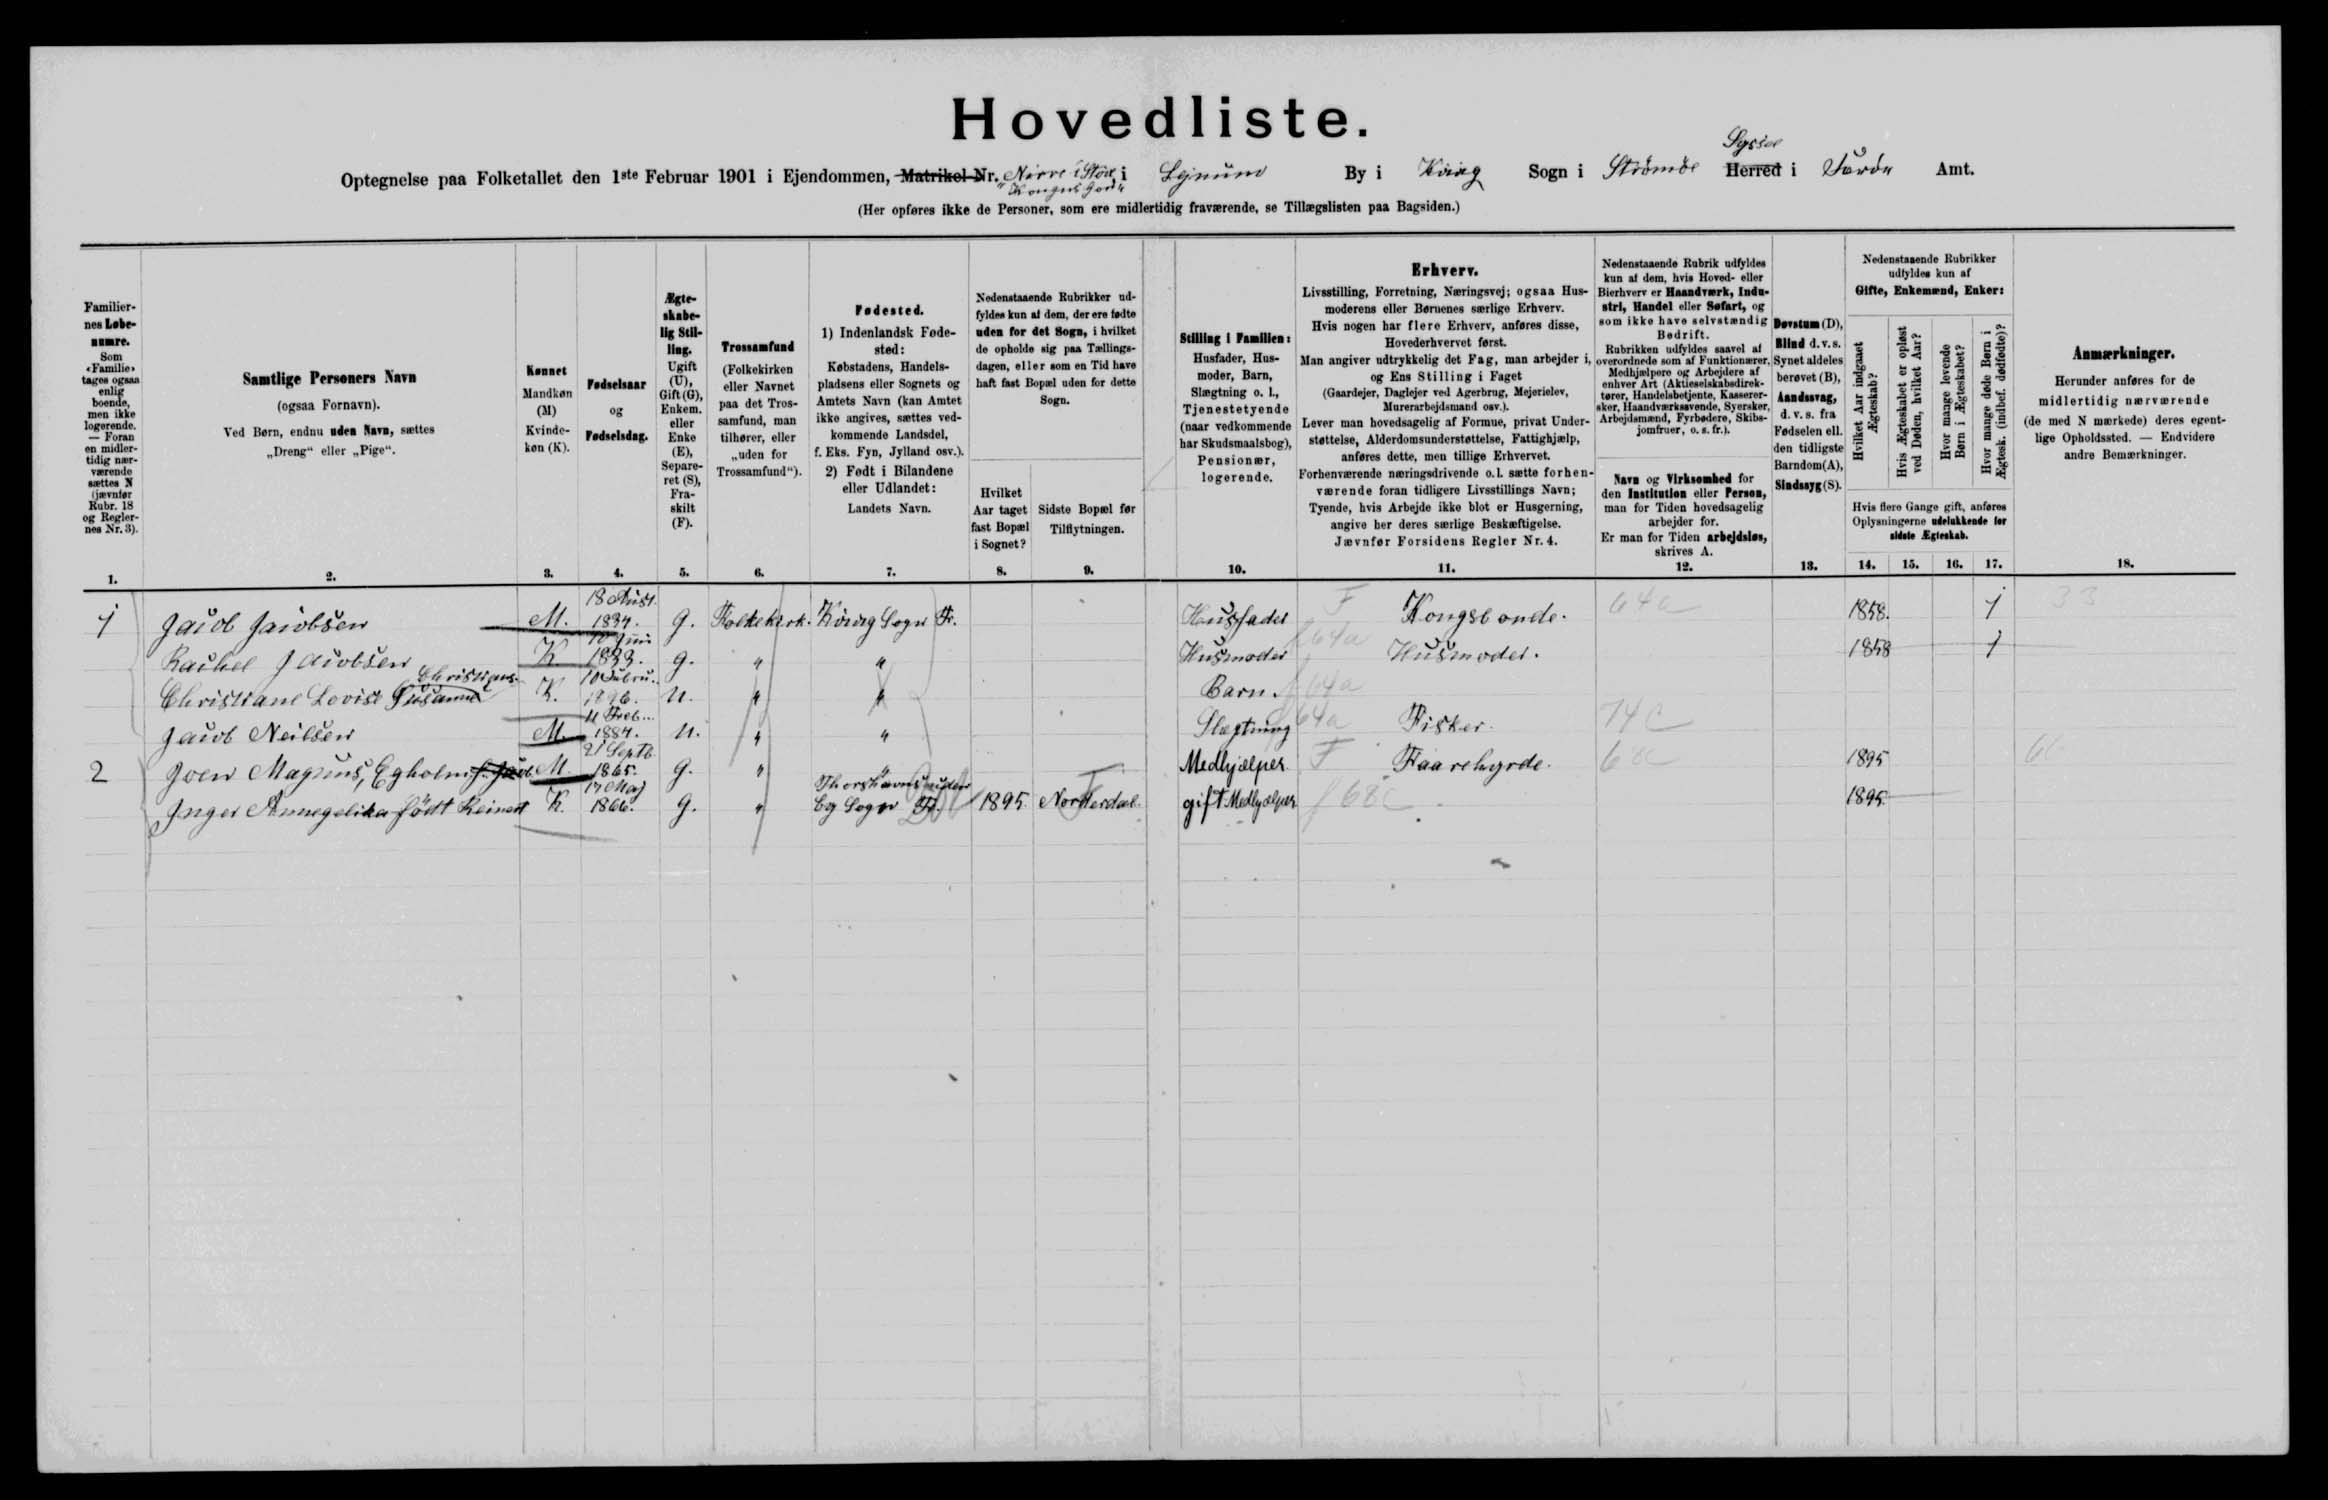 Hovedliste.
Syssel
Optegnelse paa Folketallet den 1ste Februar 1901 i Ejendommen, Matrikel-Nr. Nörre i Stöd, i Lejnum By i Kvivig Sogn i Strömöe Herred i Færöe Amt.
"Kongens Jord"
(Her opføres ikke de Personer, som ere midlertidig fraværende, se Tillægslisten paa Bagsiden.)
Familiernes Løbenumre.
Som «Familie» tages ogsaa enlig boende, men ikke logerende. — Foran en midlertidig nærværende sættes N (jævnfør Rubr. 18 og Reglernes Nr. 3).
1.
Samtlige Personers Navn
(ogsaa Fornavn).
Ved Børn, endnu uden Navn, sættes
„Dreng“ eller „Pige“.
2.
Kønnet
Mandkøn (M)
Kvindekøn (K).
3.
Fødselsaar
og
Fødselsdag.
4.
Ægteskabelig Stilling.
Ugift (U), Gift (G), Enkem. eller Enke (E), Separeret (S), Fraskilt (F).
5.
Trossamfund
(Folkekirken eller Navnet paa det Trossamfund, man tilhører, eller „uden for Trossamfund“).
6.
Fødested.
1) Indenlandsk Fødested:
Købstadens, Handelspladsens eller Sognets og Amtets Navn (kan Amtet ikke angives, sættes vedkommende Landsdel, f. Eks. Fyn, Jylland osv.).
2) Født i Bilandene eller Udlandet:
Landets Navn.
7.
Nedenstaaende Rubrikker udfyldes kun af dem, der ere fødte uden for det Sogn, i hvilket de opholde sig paa Tællingsdagen, eller som en Tid have haft fast Bopæl uden for dette Sogn.
Hvilket Aar taget fast Bopæl i Sognet?
8.
Sidste Bopæl før Tilflytningen.
9.
Stilling i Familien:
Husfader, Husmoder, Barn, Slægtning o. l., Tjenestetyende (naar vedkommende har Skudsmaalsbog), Pensionær, logerende.
10.
Erhverv.
Livsstilling, Forretning, Næringsvej; ogsaa Husmoderens eller Børnenes særlige Erhverv.
Hvis nogen har flere Erhverv, anføres disse, Hovederhvervet først.
Man angiver udtrykkelig det Fag, man arbejder i, og Ens Stilling i Faget
(Gaardejer, Daglejer ved Agerbrug, Mejerielev, Murerarbejdsmand osv.).
Lever man hovedsagelig af Formue, privat Understøttelse, Alderdomsunderstøttelse, Fattighjælp, anføres dette, men tillige Erhvervet.
Forhenværende næringsdrivende o. l. sætte forhenværende foran tidligere Livsstillings Navn;
Tyende, hvis Arbejde ikke blot er Husgerning, angive her deres særlige Beskæftigelse.
Jævnfør Forsidens Regler Nr. 4.
11.
Nedenstaaende Rubrik udfyldes kun af dem, hvis Hoved- eller Bierhverv er Haandværk, Industri, Handel eller Søfart, og som ikke have selvstændig Bedrift.
Rubrikken udfyldes saavel af overordnede som af Funktionærer, Medhjælpere og Arbejdere af enhver Art (Aktieselskabsdirektører, Handelsbetjente, Kasserersker, Haandværkssvende, Syersker, Arbejdsmænd, Fyrbødere, Skibsjomfruer, o. s. fr.).
Navn og Virksomhed for den Institution eller Person, man for Tiden hovedsagelig arbejder for.
Er man for Tiden arbejdsløs, skrives A.
12.
Døvstum (D), Blind d. v. s. Synet aldeles berøvet (B), Aandssvag, d. v. s. fra Fødselen ell. den tidligste Barndom (A), Sindssyg (S).
13.
Nedenstaaende Rubrikker udfyldes kun af
Gifte, Enkemænd, Enker:
Hvilket Aar indgaaet Ægteskab?
Hvis Ægteskabet er opløst ved Døden, hvilket Aar?
Hvor mange levende Børn i Ægteskabet?
Hvor mange døde Børn i Ægtesk. (indbef. dødfødte)?
Hvis flere Gange gift, anføres Oplysningerne udelukkende for sidste Ægteskab.
14. 15. 16. 17.
Anmærkninger.
Herunder anføres for de midlertidig nærværende (de med N mærkede) deres egentlige Opholdssted. — Endvidere andre Bemærkninger.
18.
1 Jacob Jacobsen M. 18 Aust. 1834. G. Folkekirk. Kvivig Sogn Fr. Husfader F Kongsbonde. 64a 1858. 1 33
Rachel Jacobsen K 10 Juni 1833. G. " " Husmoder f 64a Husmoder. 1858 1
Christiane Lovise Susanna Christians. K. 10 Febru. 1896. U. " " Barn. f 64a
Jacob Neilsen M. 11 Feb. 1884. U. " " Slægtning f 64a Fisker. 74c
2 Joen Magnus, Egholm f. Jacob M. 21 Septb 1865. G. " " Medhjælper F Faarehyrde. 68c 1895
Inger Annegelika födt Reinert K. 17 Maj 1866. G. " Thorshavns uden By Sogn Fr. 1895 Norderdal. gift Medhjælper f 68c 1895.